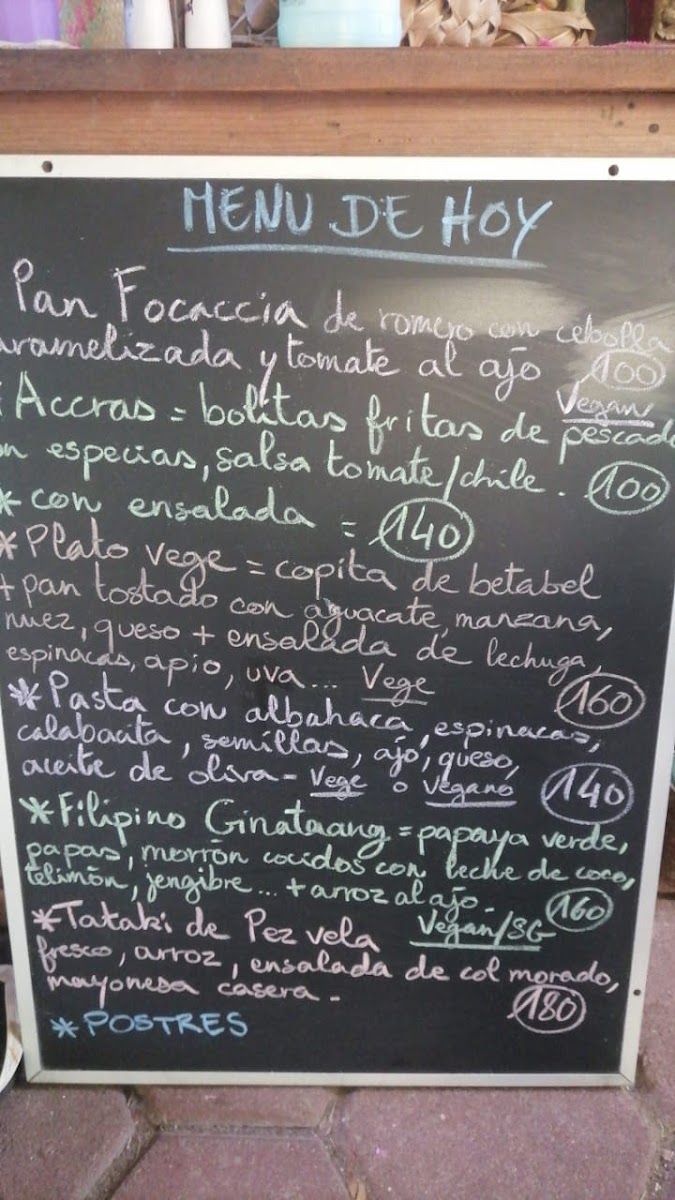 MENU DE HOY
Pan Focaccia de romero con cebolla
aramelizada y tomate al ajo 100
Vegan
Accras = bolitas fritas de pescado
on especias, salsa tomate/chile. 100
* con ensalada = 140
* Plato vege = copita de betabel
+ pan tostado con aguacate, manzana,
nuez, queso + ensalada de lechuga,
espinacas, apio, uva... Vege 160
* Pasta con albahaca, espinacas,
calabacita, semillas, ajo, queso,
aceite de oliva - Vege o Vegano 140
* Filipino Ginataang = papaya verde,
papas, morrón cocidos con leche de coco,
telimón, jengibre... + arroz al ajo. 160
Vegan/SG
* Tataki de Pez vela
fresco, arroz, ensalada de col morado,
mayonesa casera - 180
* POSTRES